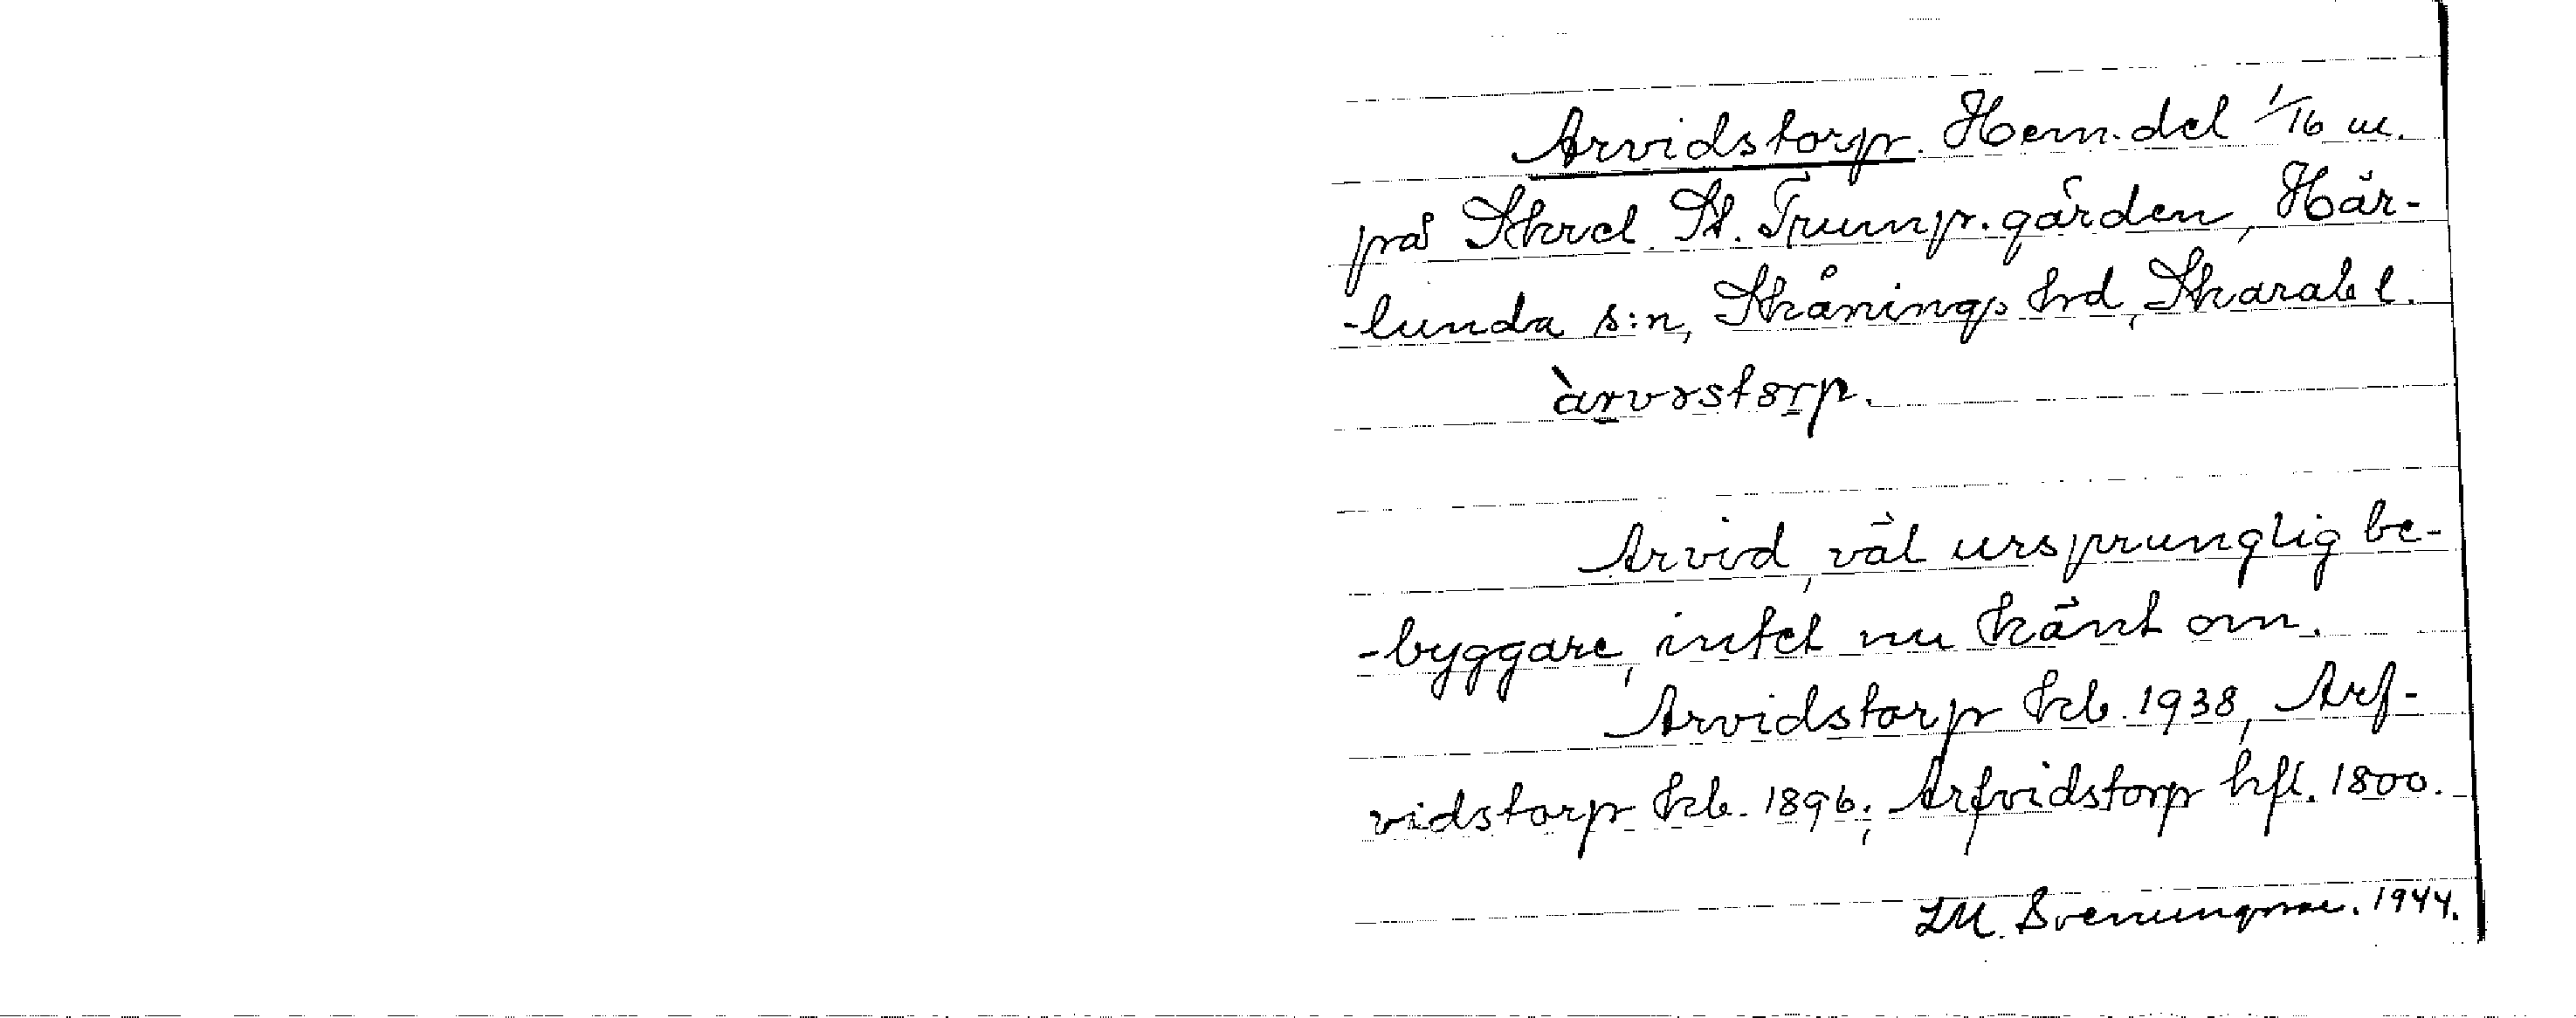 Arvidstorp. Hem.del 1/16 m.
på Skrcl. St. Trump.gården, Här-
-lunda s:n, Skånings hrd, Skarab l.
àrvɪstɔrp.
Arvid, väl ursprunglig be-
-byggare, intet nu känt om.
Arvidstorp kb. 1938, Arf-
vidstorp kb. 1896; Arfvidstorp hfl. 1800.
LM. Svenungsson. 1944.